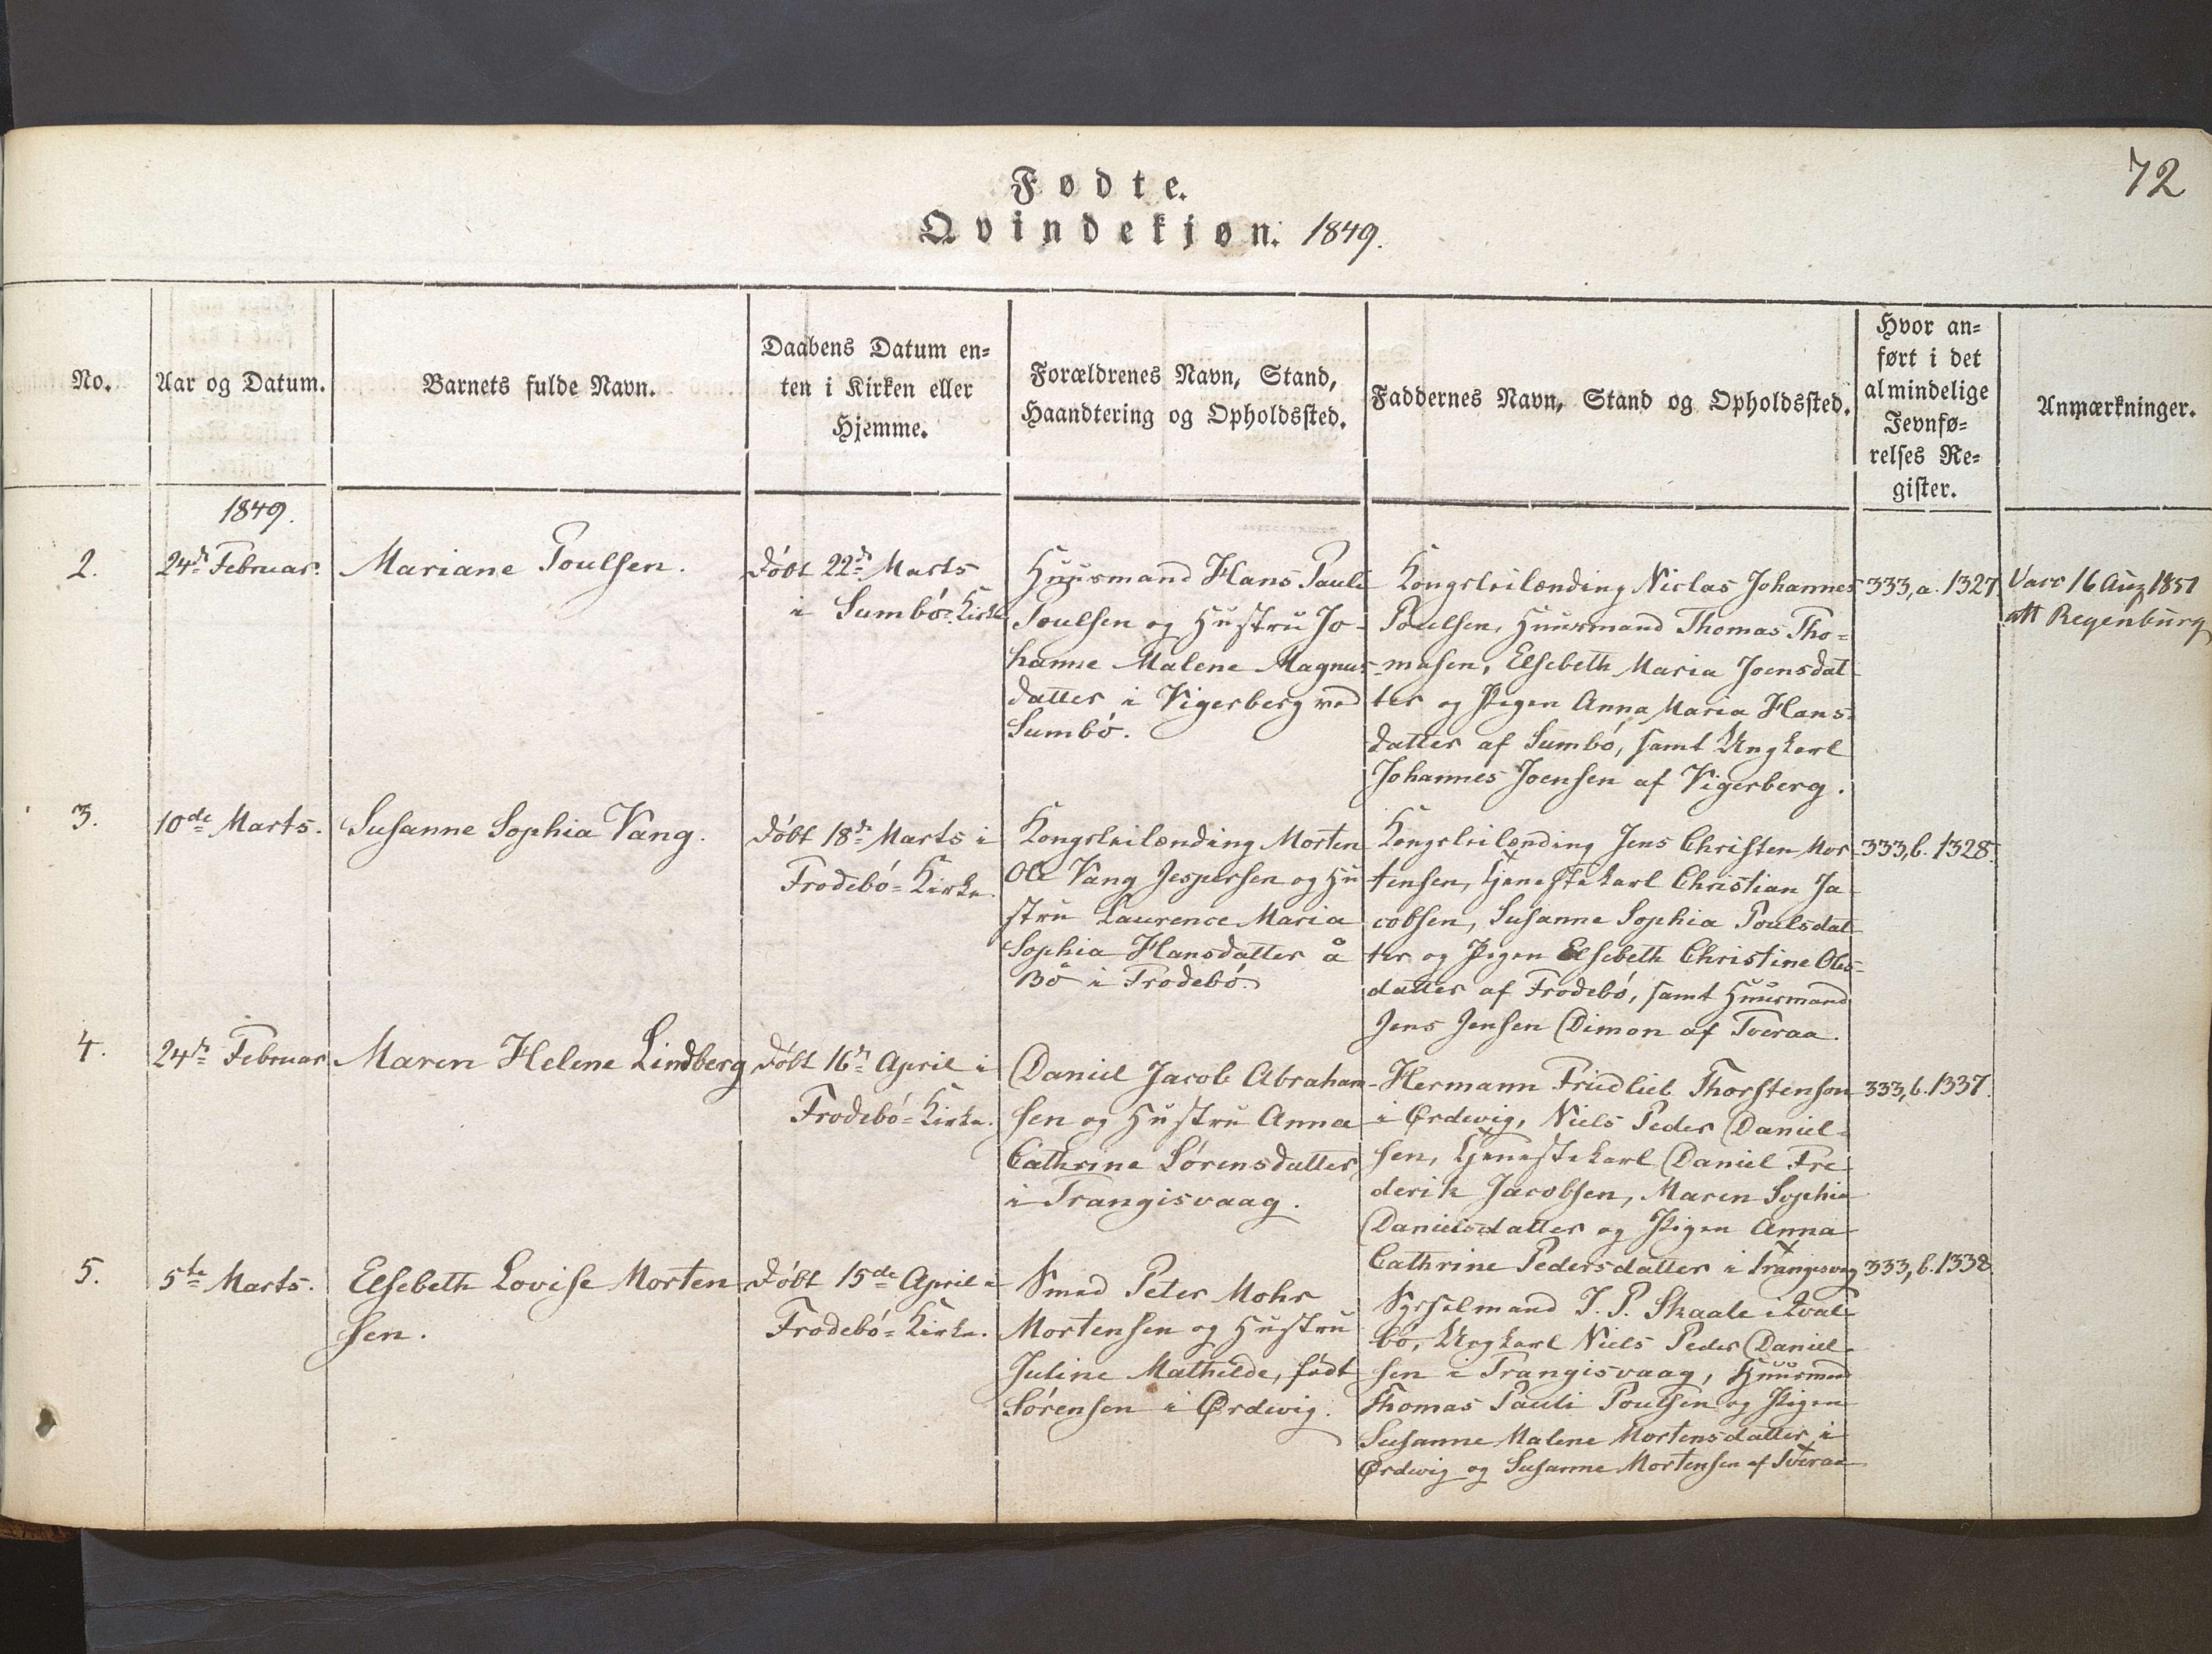 72
Fødte.
Qvindekjøn. 1849.
No.
Aar og Datum.
Barnets fulde Navn.
Daabens Datum en=
ten i Kirken eller
Hjemme.
Forældrenes Navn, Stand,
Haandtering og Opholdssted.
Faddernes Navn, Stand og Opholdssted.
Hvor an=
ført i det
almindelige
Jevnfø=
relses Re=
gister.
Anmærkninger.
1849.
2.
24de Februar.
Mariane Poulsen.
Døbt 22de Marts
i Sumbø=Kirke
Huusmand Hans Pauli
Poulsen og Hustru Jo-
hanne Malene Magnus-
datter i Vigerberg ved
Sumbø.
Kongsleilænding Niclas Johannes
Poulsen, Huusmand Thomas Tho=
masen, Elsebeth Maria Joensdat
ter og Pigen Anna Maria Hans=
datter af Sumbø, samt Ungkarl
Johannes Joensen af Vigerberg.
333, a. 1327
Vacc 16 Aug 1851
att Regenburg
3.
10de Marts.
Susanne Sophia Vang.
Døbt 18de Marts i
Frodebø=Kirke.
Kongsleilænding Morten
Ole Vang Jespersen og Hu
stru Laurence Maria
Sophia Hansdatter å
Bø i Frodebø.
Kongsleilænding Jens Christen Mor-
tensen, Tjenestekarl Christian Ja
cobsen, Susanne Sophia Poulsdat
ter og Pigen Elsebeth Christine Ols=
datter af Frodebø, samt Huusmand
Jens Jensen Dimon af Tveraa.
333, b. 1328.
4.
24de Februar
Maren Helene Lindberg
Døbt 16de April i
Frodebø=Kirke.
Daniel Jacob Abraham-
sen og Hustru Anna
Cathrine Sørensdatter
i Trangisvaag.
Hermann Friedlieb Thorstenson
i Ørdevig, Niels Peder Daniel=
sen, Tjenestekarl Daniel Fre
derik Jacobsen, Maren Sophia
Danielsdatter og Pigen Anna
Cathrine Pedersdatter i Trangisvog
333, b. 1337.
5.
5te Marts.
Elsebeth Lovise Morten
sen.
Døbt 15de April i
Frodebø=Kirke.
Smed Peter Mohr
Mortensen og Hustru
Juline Mathilde, født
Sørensen i Ørdevig.
Sysselmand J. P. Skaale i Qval
bø, Ungkarl Niels Peder Daniel=
sen i Trangisvaag, Huusmand
Thomas Pauli Poulsen og Pigen
Susanne Malene Mortensdatter i
Ørdevig og Susanne Mortensen af Tveraa
333, b. 1338.